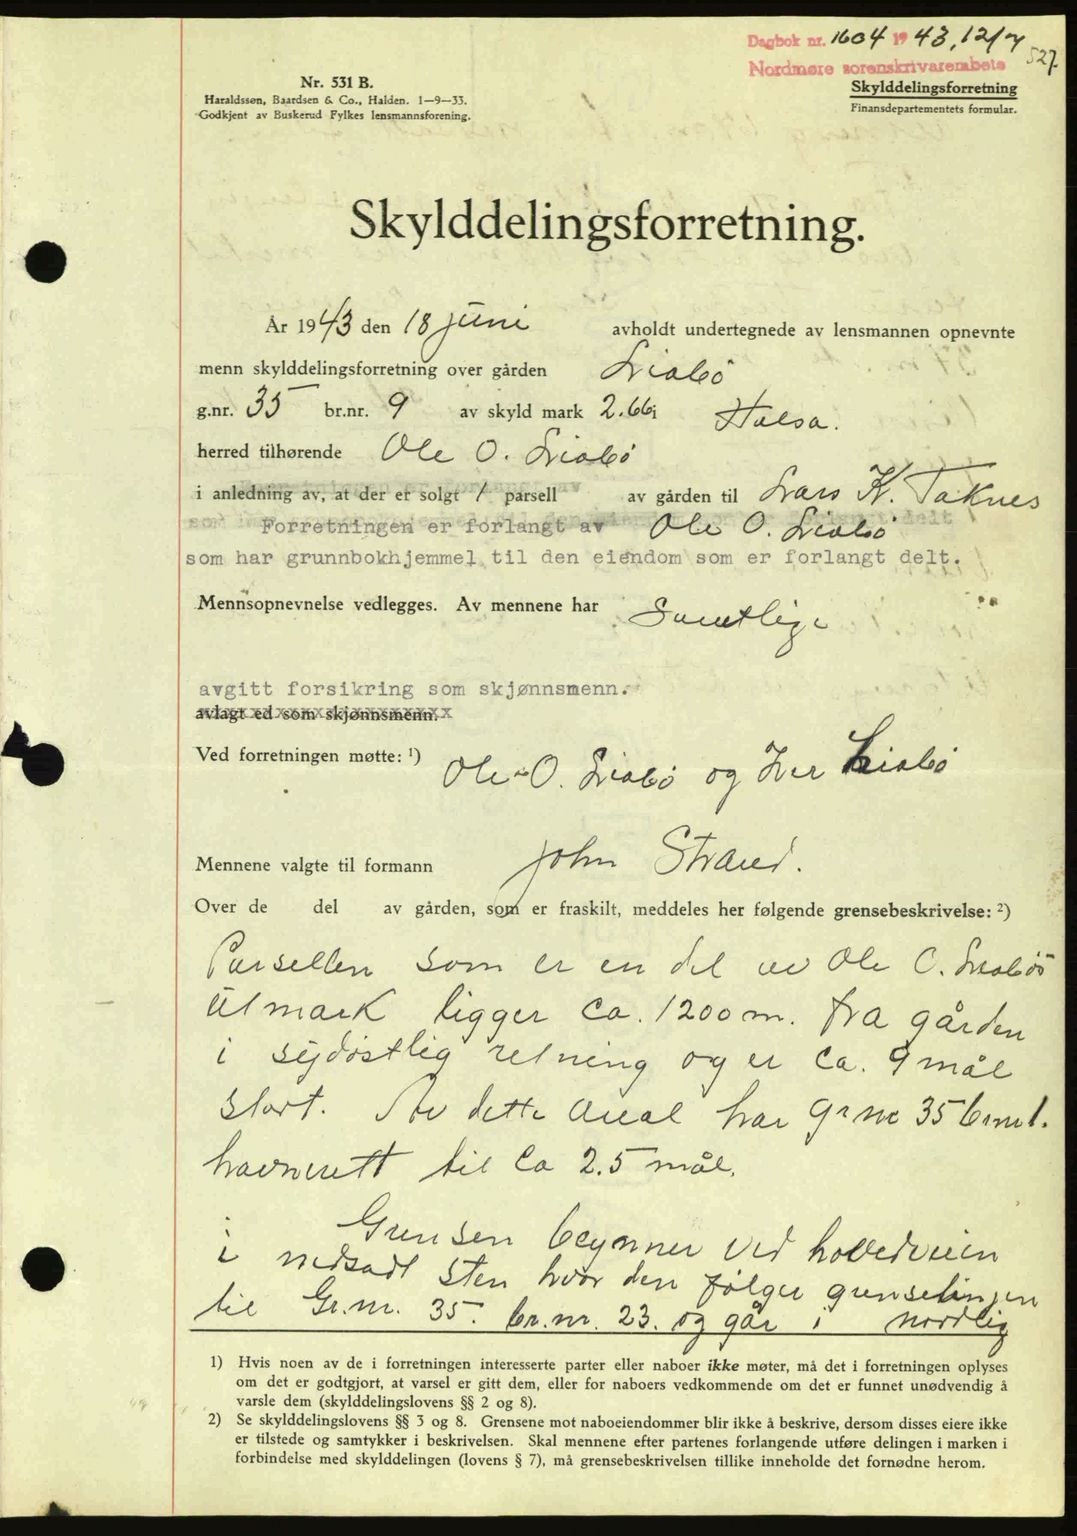 Dagbok nr. 1604 1943, 12/7
Nordmøre sorenskrivarembete
527.
Nr. 531 B.
Haraldssen, Baardsen & Co., Halden. 1—9—33.
Godkjent av Buskerud Fylkes lensmannsforening.
Skylddelingsforretning
Finansdepartementets formular.
Skylddelingsforretning.
År 1943 den 18 juni avholdt undertegnede av lensmannen opnevnte
menn skylddelingsforretning over gården Liabø
g.nr. 35 br.nr. 9 av skyld mark 2.66 i Halsa.
herred tilhørende Ole O. Liabø
i anledning av, at der er solgt 1 parsell av gården til Lars K. Taknes
Forretningen er forlangt av Ole O. Liabø
som har grunnbokhjemmel til den eiendom som er forlangt delt.
Mennsopnevnelse vedlegges. Av mennene har Samtlige
avgitt forsikring som skjønnsmenn.
avlagt ed som skjønnsmenn.
Ved forretningen møtte: 1) Ole O. Liabø og Iver Liabø
Mennene valgte til formann John Strand.
Over de del av gården, som er fraskilt, meddeles her følgende grensebeskrivelse: 2)
Parsellen som er en del av Ole O. Liabøs
utmark ligger ca. 1200 m. fra gården
i sydøstlig retning og er ca. 9 mål
stort. Av dette areal har gr nr 35 br nr 1.
havnerett til ca 2.5 mål.
Grensen begynner ved hovedveien
i nedsadt sten hvor den følger grenselinjen
til Gr.nr. 35. br.nr. 23. og går i nordlig
1) Hvis noen av de i forretningen interesserte parter eller naboer ikke møter, må det i forretningen oplyses
om det er godtgjort, at varsel er gitt dem, eller for naboers vedkommende om det er funnet unødvendig å
varsle dem (skylddelingslovens §§ 2 og 8).
2) Se skylddelingslovens §§ 3 og 8. Grensene mot naboeiendommer blir ikke å beskrive, dersom disses eiere ikke
er tilstede og samtykker i beskrivelsen. Skal mennene efter partenes forlangende utføre delingen i marken i
forbindelse med skylddelingen (lovens § 7), må grensebeskrivelsen tillike inneholde det fornødne herom.